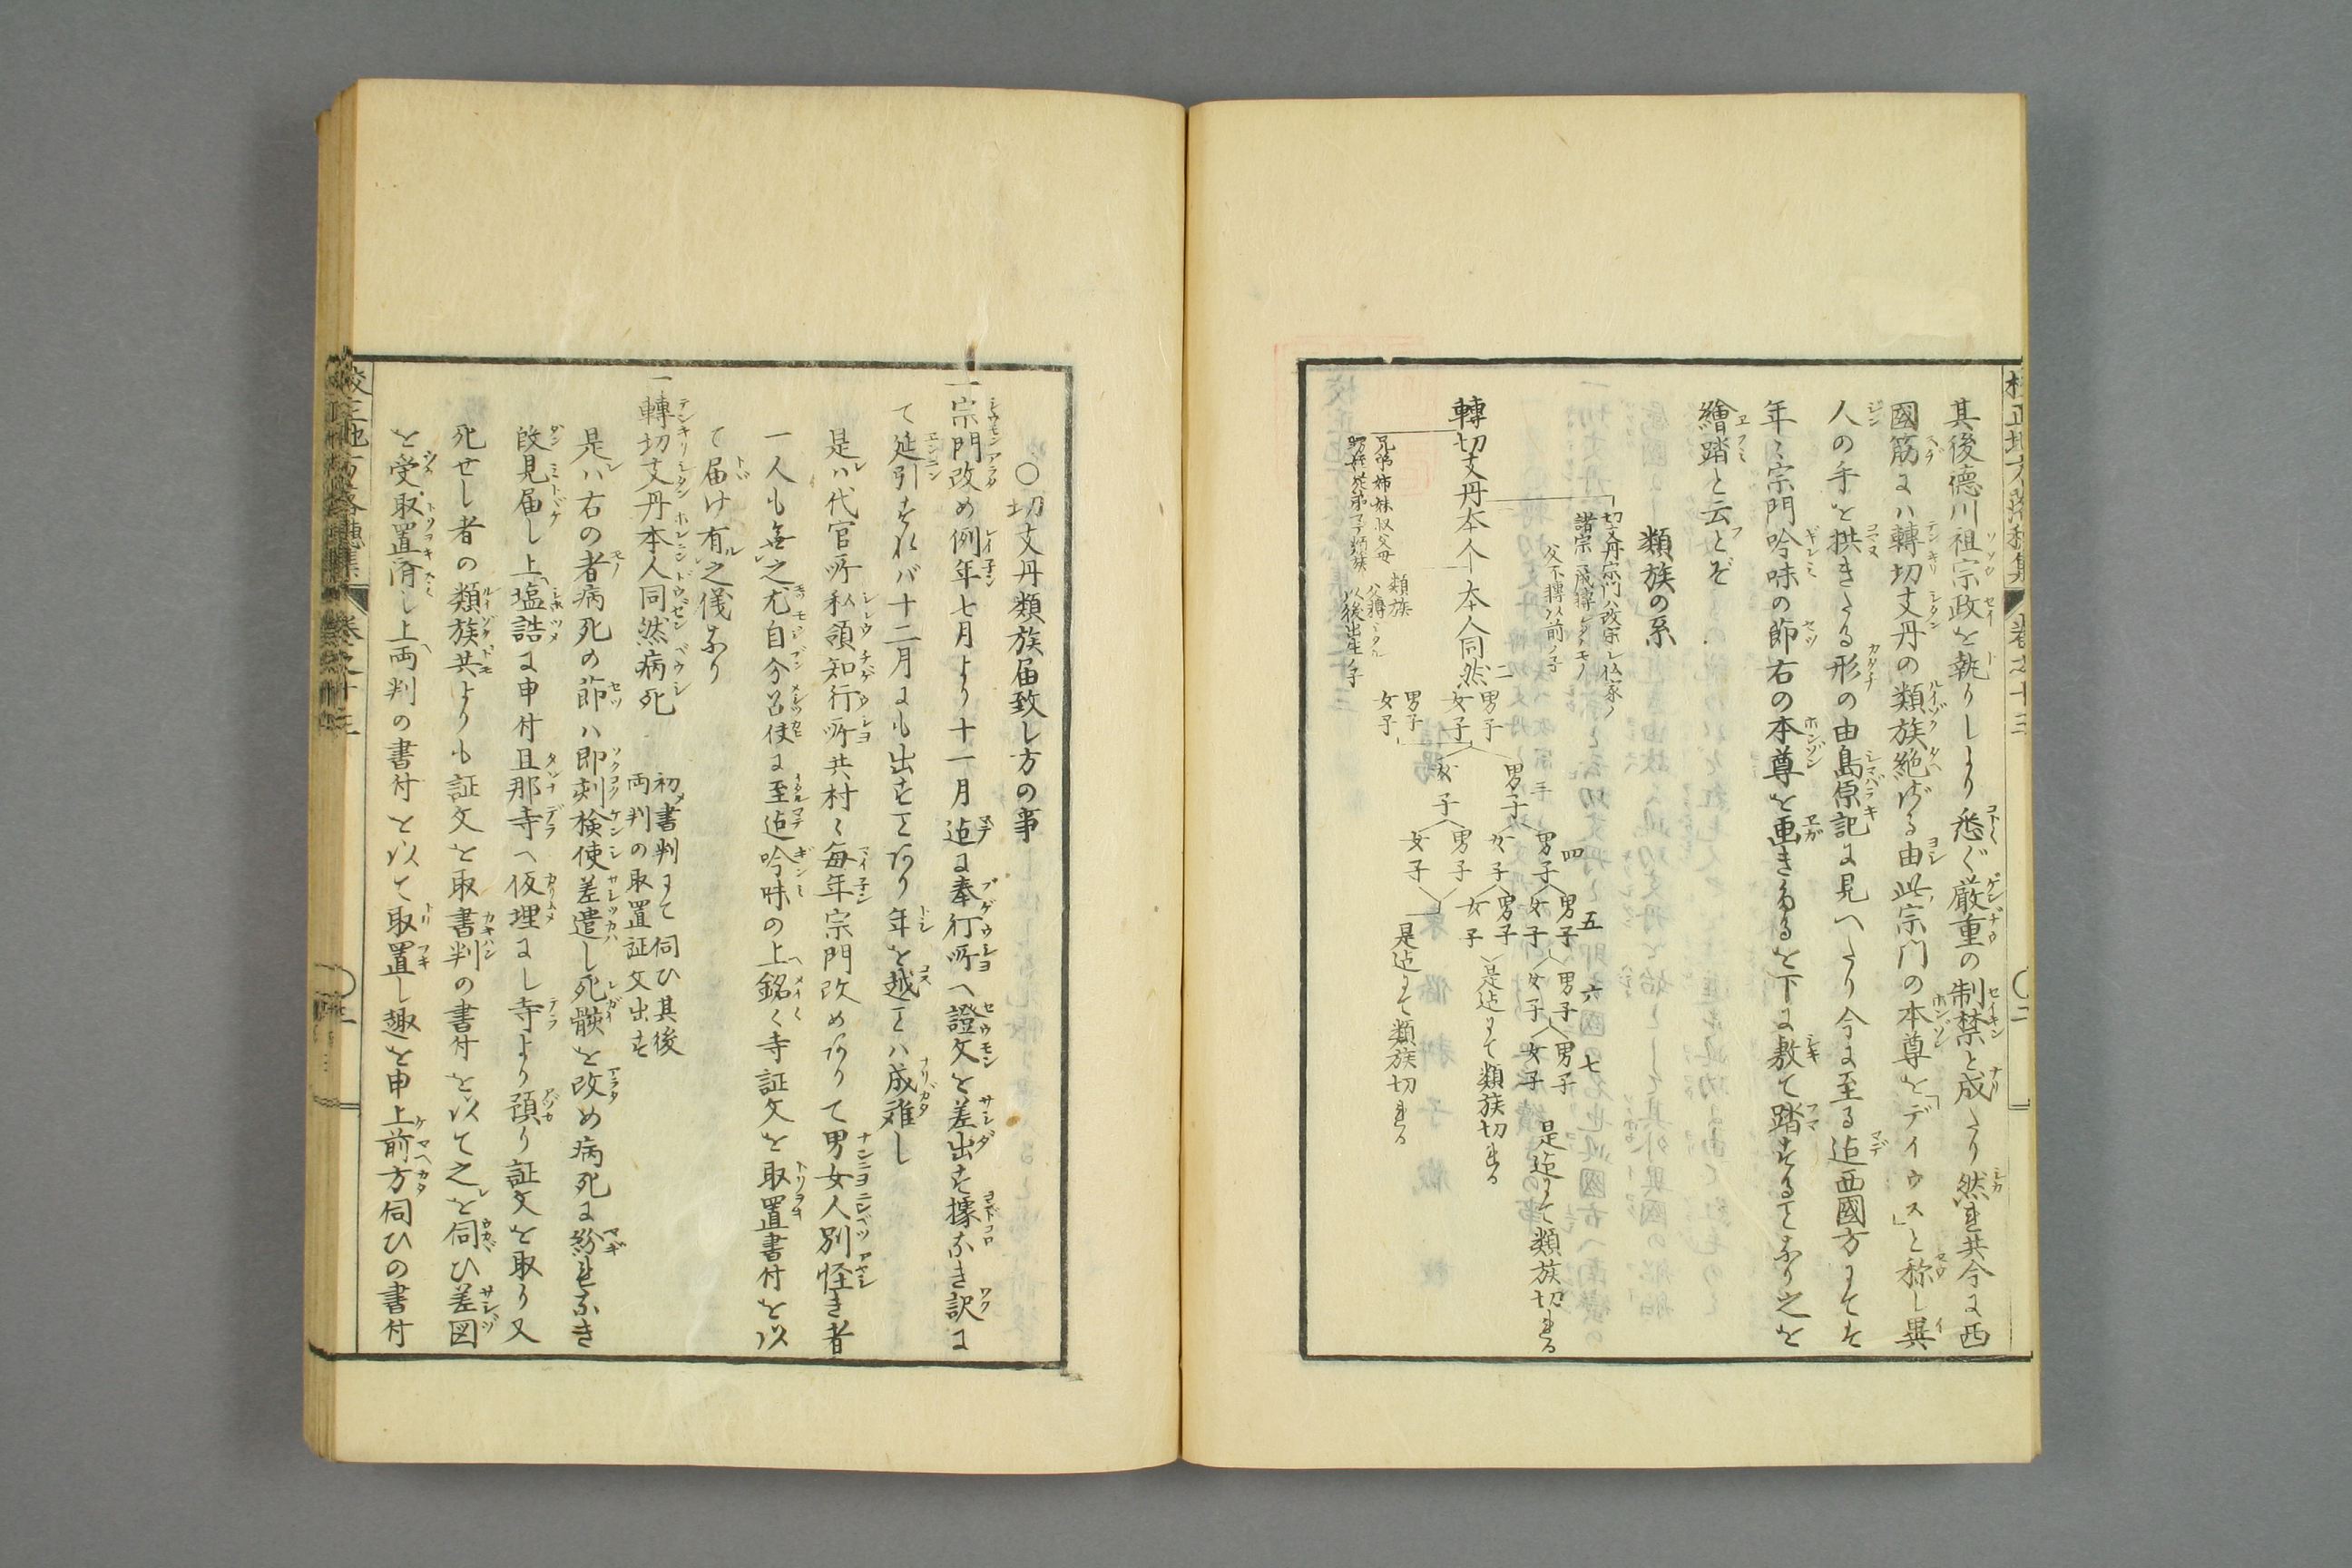 其後徳川祖宗政を執りしより悉く厳重の制禁と成たり然れ共今に西
國筋には轉切支丹の類族絶ざる由此宗門の本尊を「デイウス」と称し異
人の手を拱きたる形の由島原記に見へたり今に至る迠西國方にてそ
年々宗門吟味の節右の本尊を画きたるを下に敷て踏することなり之を
繪踏と云とぞ
類族の系
轉切支丹本人
本人同然
切支丹宗門ハ改宗シ仏家ノ
諸宗ニ成
父不轉以前ノ子
兄弟姉妹叔父母
類族
以後出生ノ子
二
男子
女子
男子
女子
三
男子
女子
四
男子
女子
男子
女子
五
男子
女子
男子
女子
六
男子
女子
七
男子
女子
是迠にて類族切れる
是迠にて類族切れる
是迠にて類族切れる
○切支丹類族届致し方の事
一宗門改め例年七月より十一月迠に奉行所へ證文を差出す據なき訳に
て延引すれバ十二月にも出すことあり年を越ことハ成難し
是ハ代官所私領知行所共村々毎年宗門改めありて男女人別怪き者
一人も無之尤自分召使に至迠吟味の上銘々寺証文を取置書付を以
て届け有之儀なり
一轉切支丹本人同然病死
初メ書判にて伺ひ其後
両判の取置証文出す
是ハ右の者病死の節ハ即刻検使差遣し死骸を改め病死に紛れなき
段見届し上塩詰に申付且那寺へ仮埋にし寺より預り証文を取り又
死せし者の類族共よりも証文を取書判の書付を以て之を伺ひ差図
を受取置済し上両判の書付を以て取置し趣を申上前方伺ひの書付